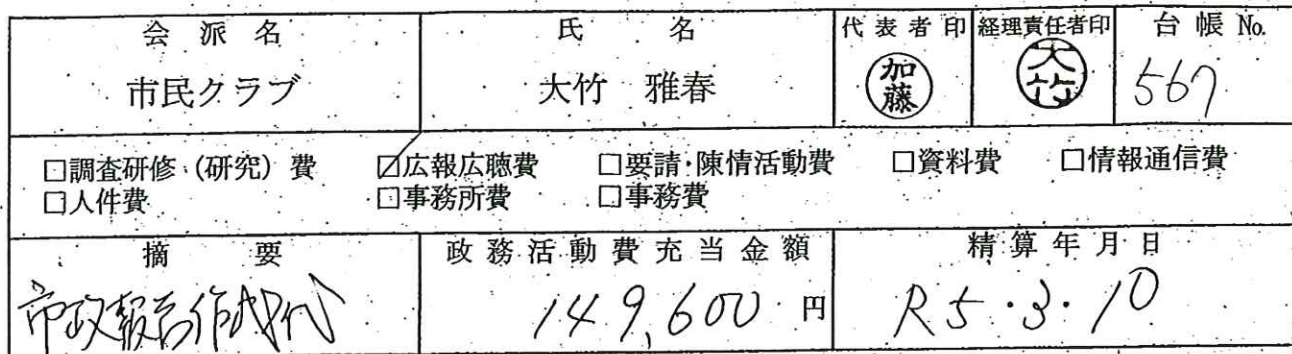 会派名 氏名 代表者印 経理責任者印 台帳No.
市民クラブ 大竹 雅春 加藤 大竹 567
□調査研修(研究)費 ☑広報広聴費 □要請・陳情活動費 □資料費 □情報通信費
□人件費 □事務所費 □事務費
摘要 政務活動費充当金額 精算年月日
市政報告作成代 149,600円 R5・3・10